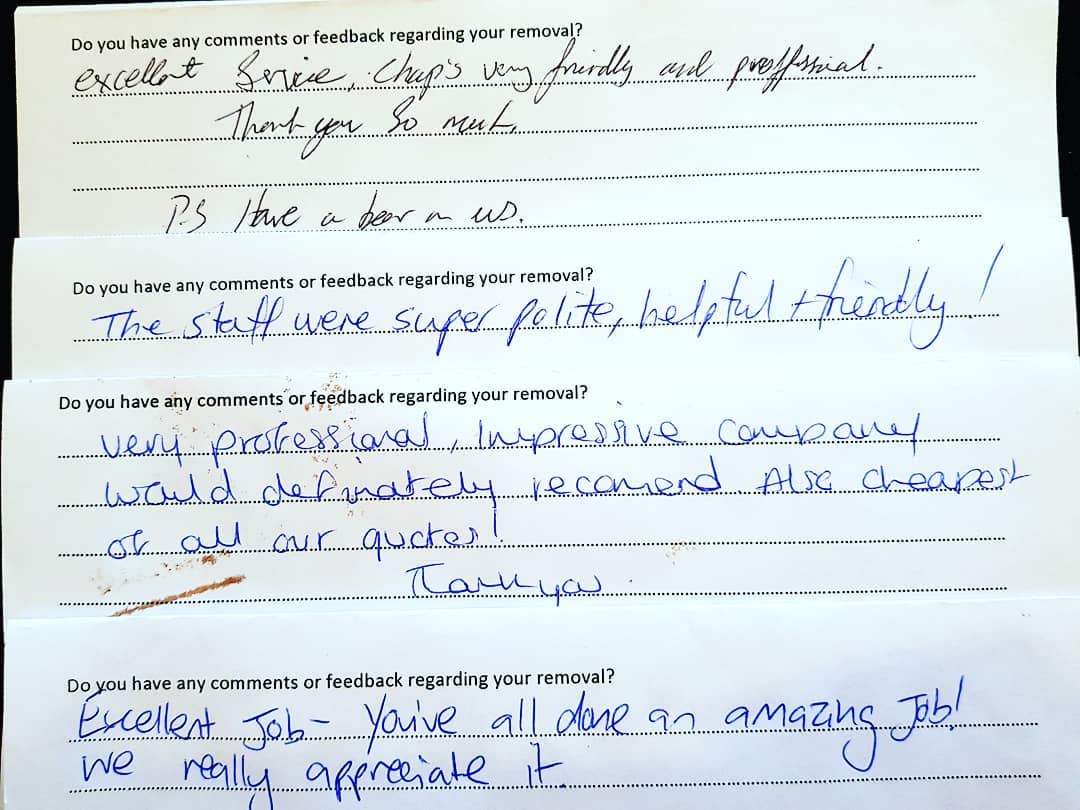 Do you have any comments or feedback regarding your removal?
excellent Service, Chap's very friendly and proffssional.
Thank you So much,
P.S Have a beer on us.
Do you have any comments or feedback regarding your removal?
The staff were super polite, helpful + friendly!
Do you have any comments or feedback regarding your removal?
very professional, Impressive company
would definately recomend. Also cheapest
of all our quotes!
Thank you.
Do you have any comments or feedback regarding your removal?
Excellent Job - You've all done an amazing Job!
We really appreciate it.